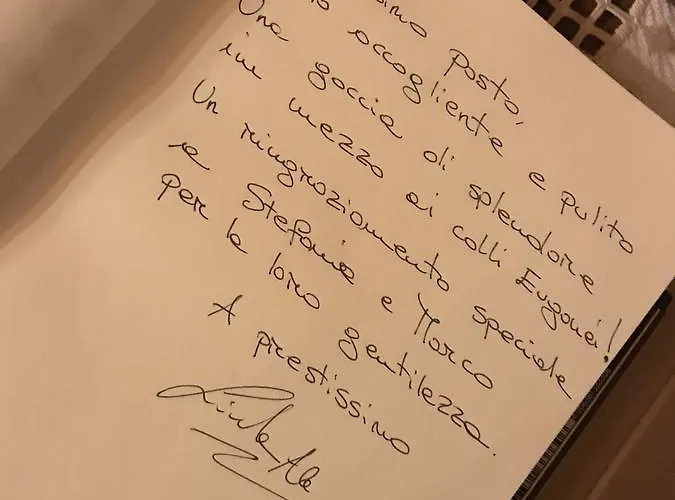 posto,
accogliente e pulito
Una goccia di splendore
in mezzo ai colli Euganei!
Un ringraziamento speciale
a Stefania e Marco
per la loro gentilezza.
A prestissimo